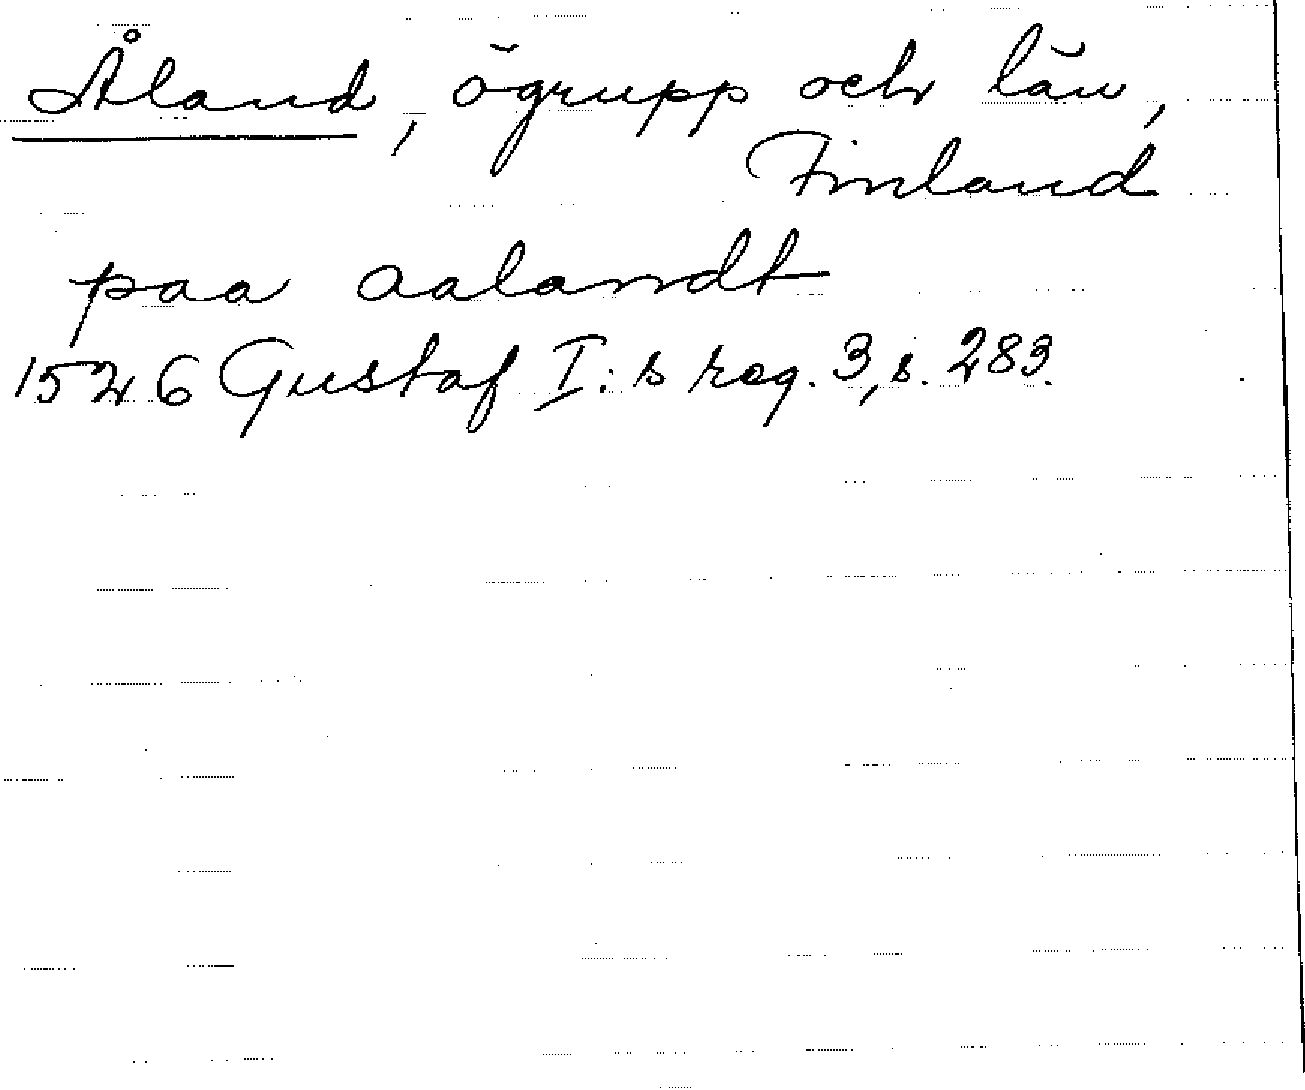 Åland, ögrupp och län,
Finland
paa aalandt
1526 Gustaf I:s reg. 3, s. 283.